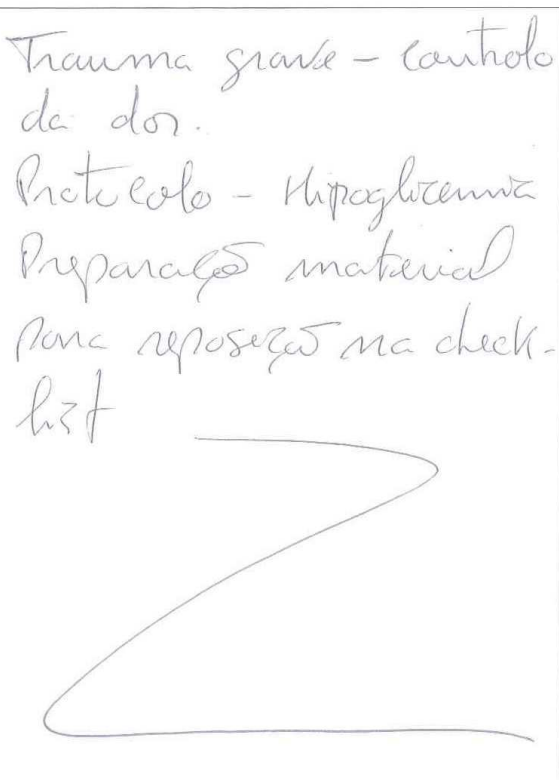 Trauma grave - controlo
da dor.
Protocolo - Hipoglicemia
Preparação material
para reposição na check-
list